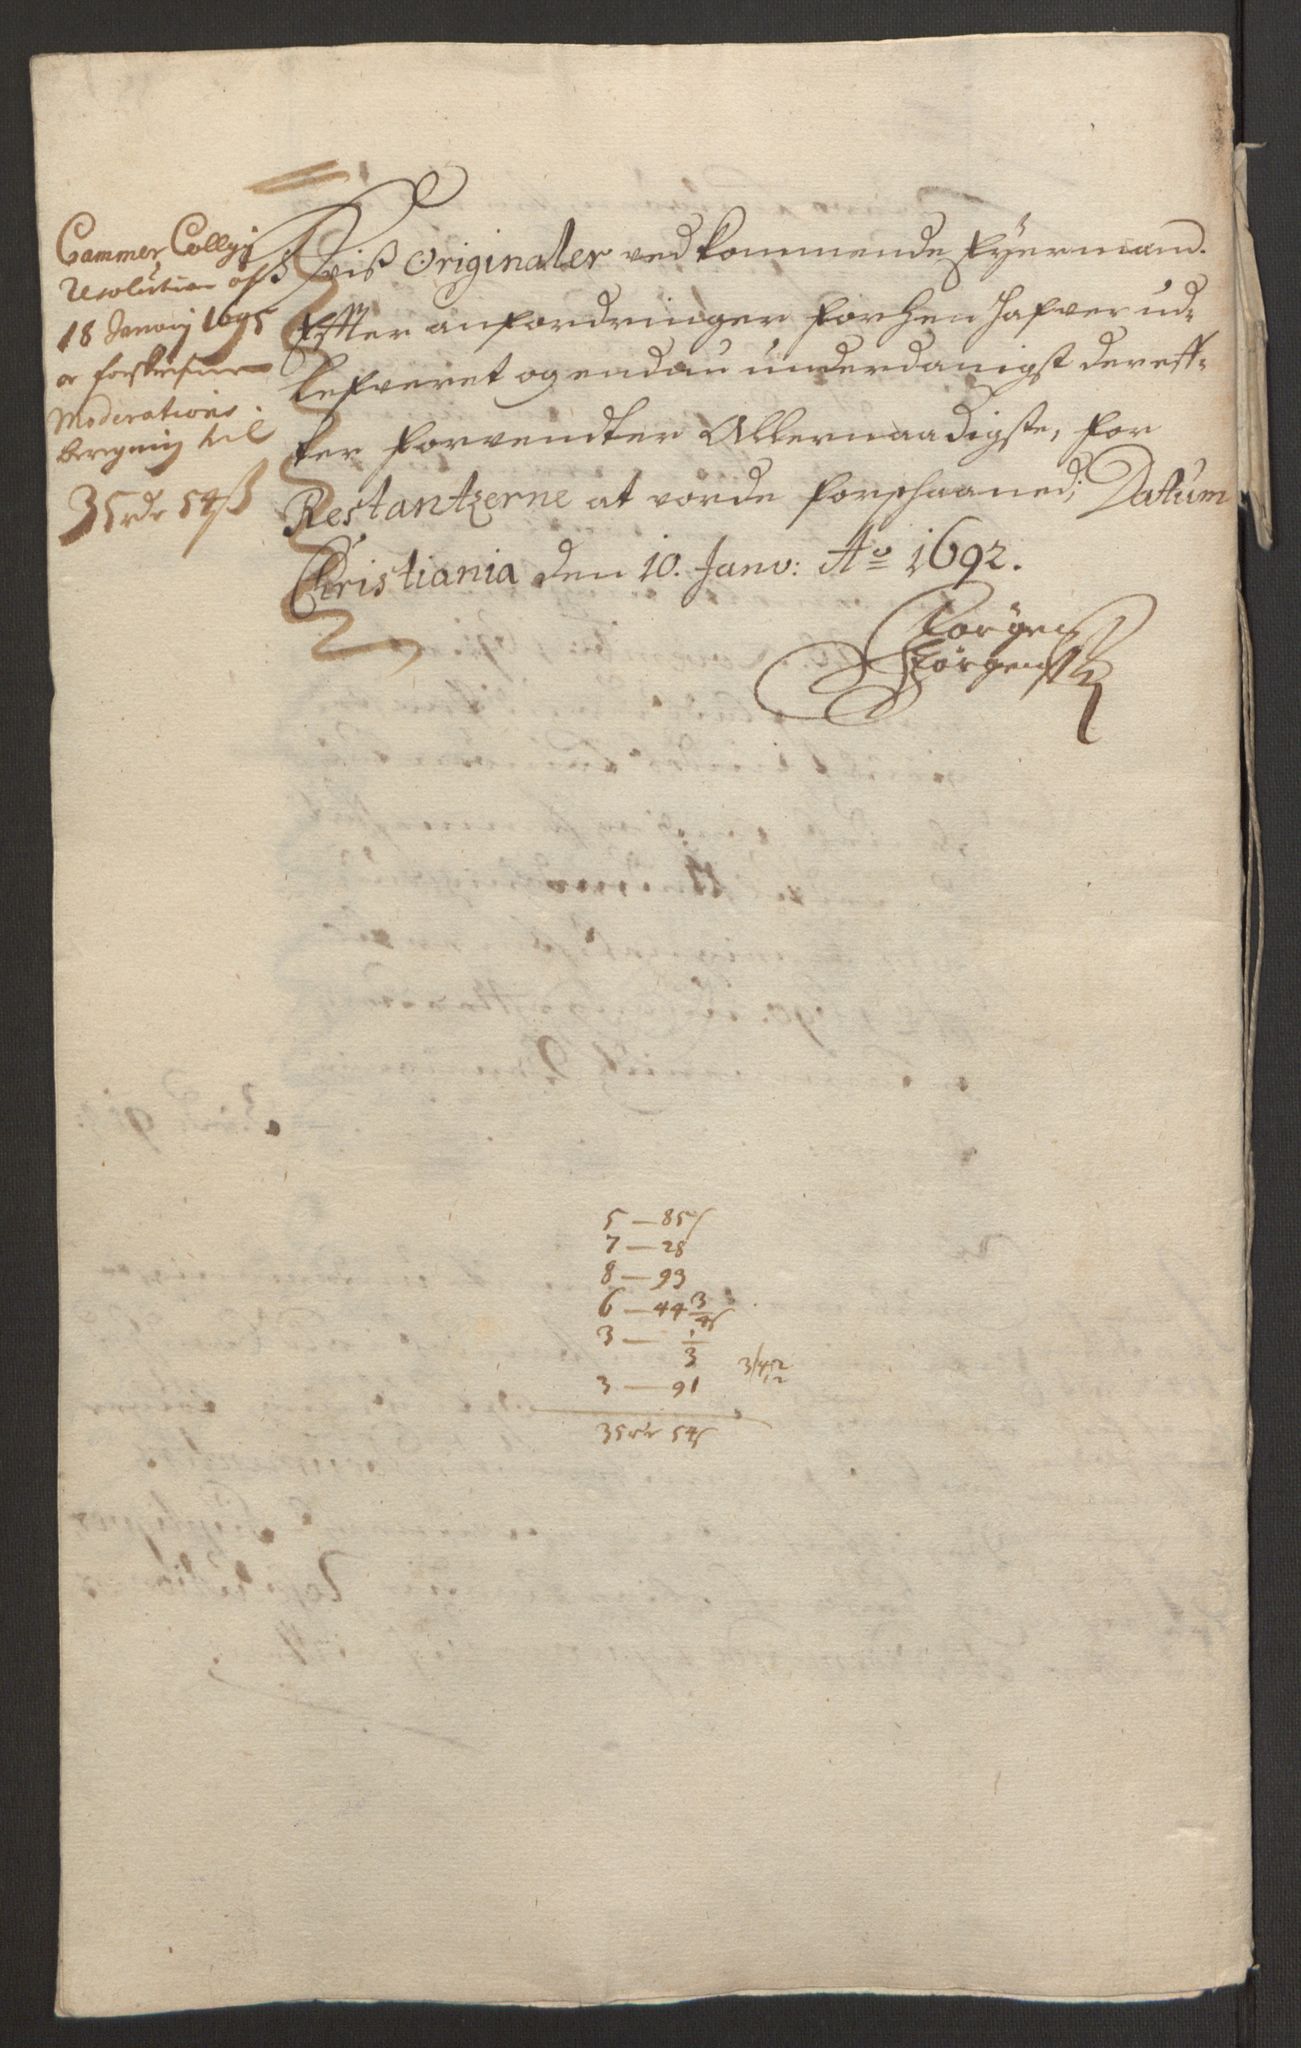 Cammer Collgij
resolution af
18 Januarij 1695
er forskrefne
Moderations
beregning til
35 rdr 54 ß
Hviß Originaler ved kommende Fyermand.
Effter anfordringer forhen hafver ud-
lefveret og endnu underdanigst dereff-
ter forvendter Allernaadigste, for
Restantzerne at vorde forschaaned; Datum
Christiania den 10. Janv: Ao 1692.
Jörgen
Jörgenß
5 — 85 ß
7 — 28
8 — 93
6 — 44 3/4 ß
3 — 1/3
3 — 91
35 rdr 54 ß